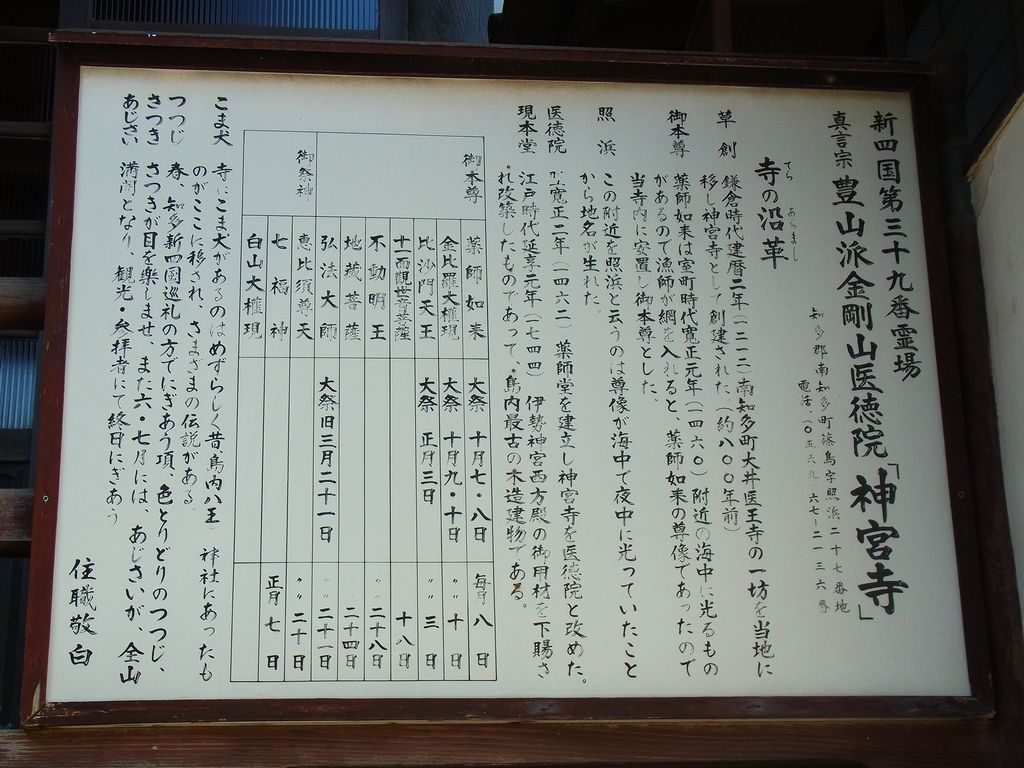 新四国第三十九番霊場
真言宗 豊山派金剛山医徳院「神宮寺」
知多郡南知多町篠島字照浜二十七番地
電話(〇五六九)六七-二一三六番
てら あらまし
寺の沿革
草創 鎌倉時代建暦二年(一二一二)南知多町大井医王寺の一坊を当地に
移し神宮寺として創建された(約八〇〇年前)
御本尊 薬師如来は室町時代寛正元年(一四六〇)附近の海中に光るもの
があるので漁師が網を入れると、薬師如来の尊像であったので
当寺内に安置し御本尊とした。
照浜 この附近を照浜と云うのは尊像が海中で夜中に光っていたこと
から地名が生れた
医徳院 寛正二年(一四六二) 薬師堂を建立し神宮寺を医徳院と改めた。
現本堂 江戸時代延享元年(一七四四) 伊勢神宮西方殿の御用材を下賜さ
れ改築したものであって、島内最古の木造建物である。
御本尊 薬師如来 大祭 十月七・八日 毎月八日
金比羅大権現 大祭 十月九・十日 〃十日
比沙門天王 大祭 正月三日 〃三日
十一面観世音菩薩 十八日
不動明王 〃二十八日
地蔵菩薩 二十四日
弘法大師 大祭旧三月二十一日 〃二十一日
御祭神 恵比須尊天 〃二十日
七福神 正月七日
白山大権現
こま犬 寺にこま犬があるのはめずらしく昔島内八王 神社にあったも
のがここに移され、さまざまの伝説がある
つつじ 春、知多新四国巡礼の方てにぎあう頃、色とりどりのつつじ、
さつき さつきが目を楽しませ、また六・七月には、あじさいが、全山
あじさい 満開となり、観光・参拝者にて終日にぎあう
住職敬白